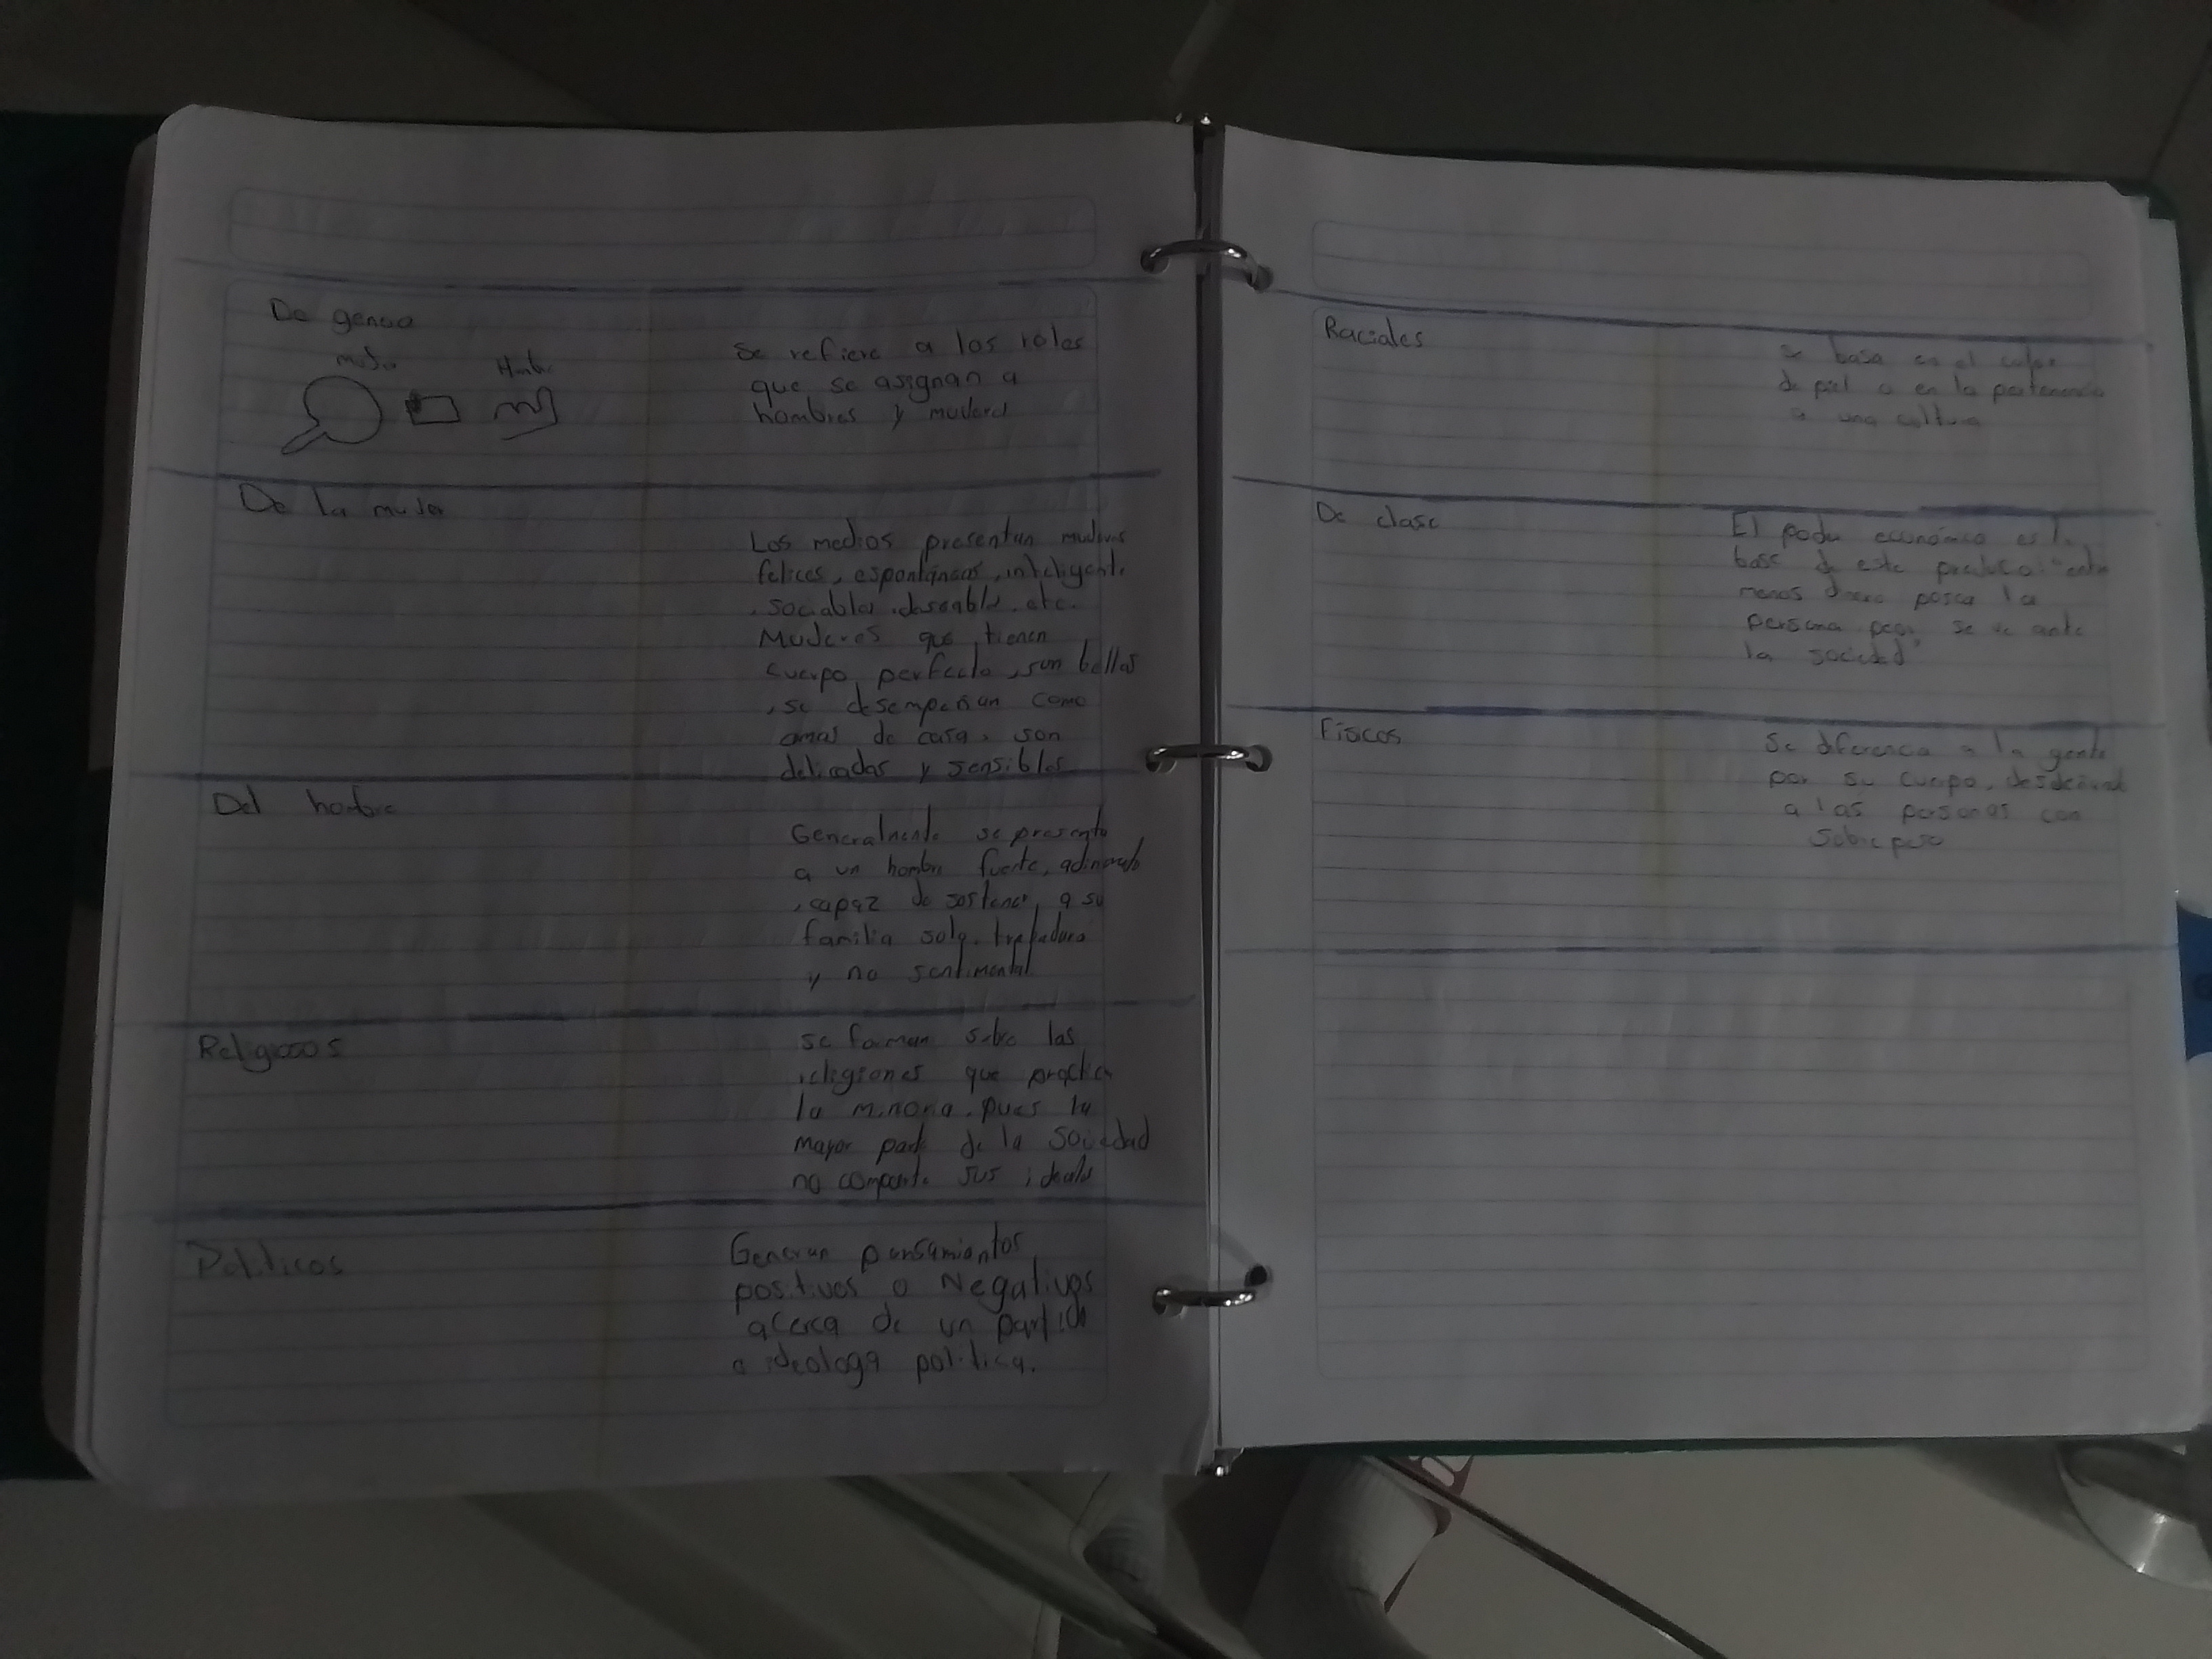 De genero
mujer Hombre
Se refiere a los roles
que se asignan a
hombres y mujeres
De la mujer
Los medios presentan mujeres
felices, espontáneas, inteligente
, sociables, deseable, etc.
Mujeres que tienen
cuerpo perfecto, son bellas
, se desempeñan como
amas de casa, son
delicadas y sensibles
Del hombre
Generalmente se presenta
a un hombre fuerte, adinerado
, capaz de sostener a su
familia solo, trabajador
y no sentimental
Religiosos
se forman sobre las
religiones que practica
la minoria, pues la
mayor parte de la sociedad
no comparte sus ideales
Politicos
Generan pensamientos
positivos o Negativos
acerca de un partido
o ideologa politica.
Raciales
se basa en el color
de piel o en la pertenencia
a una cultura
De clase
El poder económico es la
base de este prejuicio: "entre
menos dinero posea la
persona peor se ve ante
la sociedad"
Fisicos
Se diferencia a la gente
por su cuerpo,
a las personas con
Sobre peso